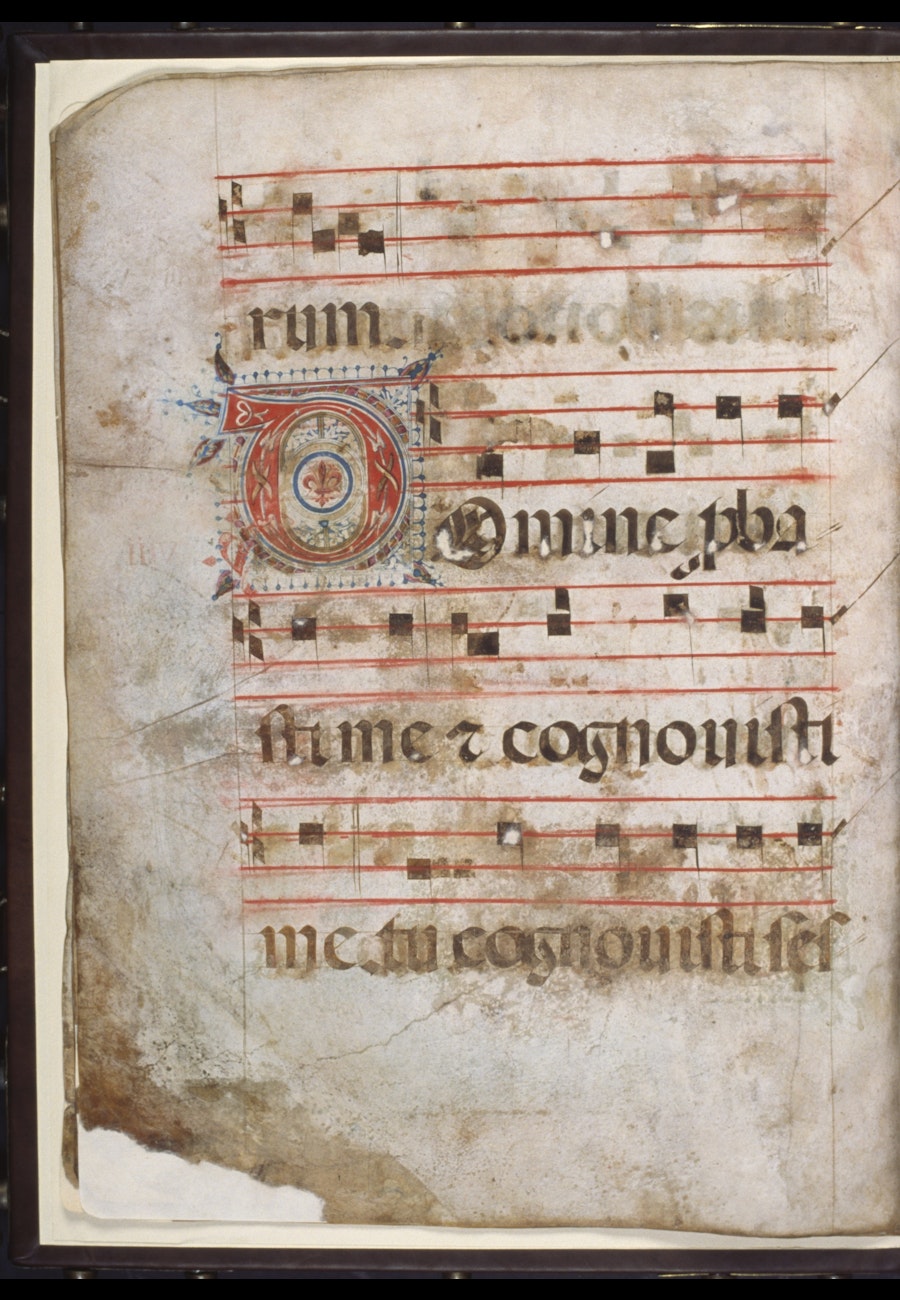 rum.
DOmine p̱ba
sti me ⁊ cognouisti
me tu cognouisti ses